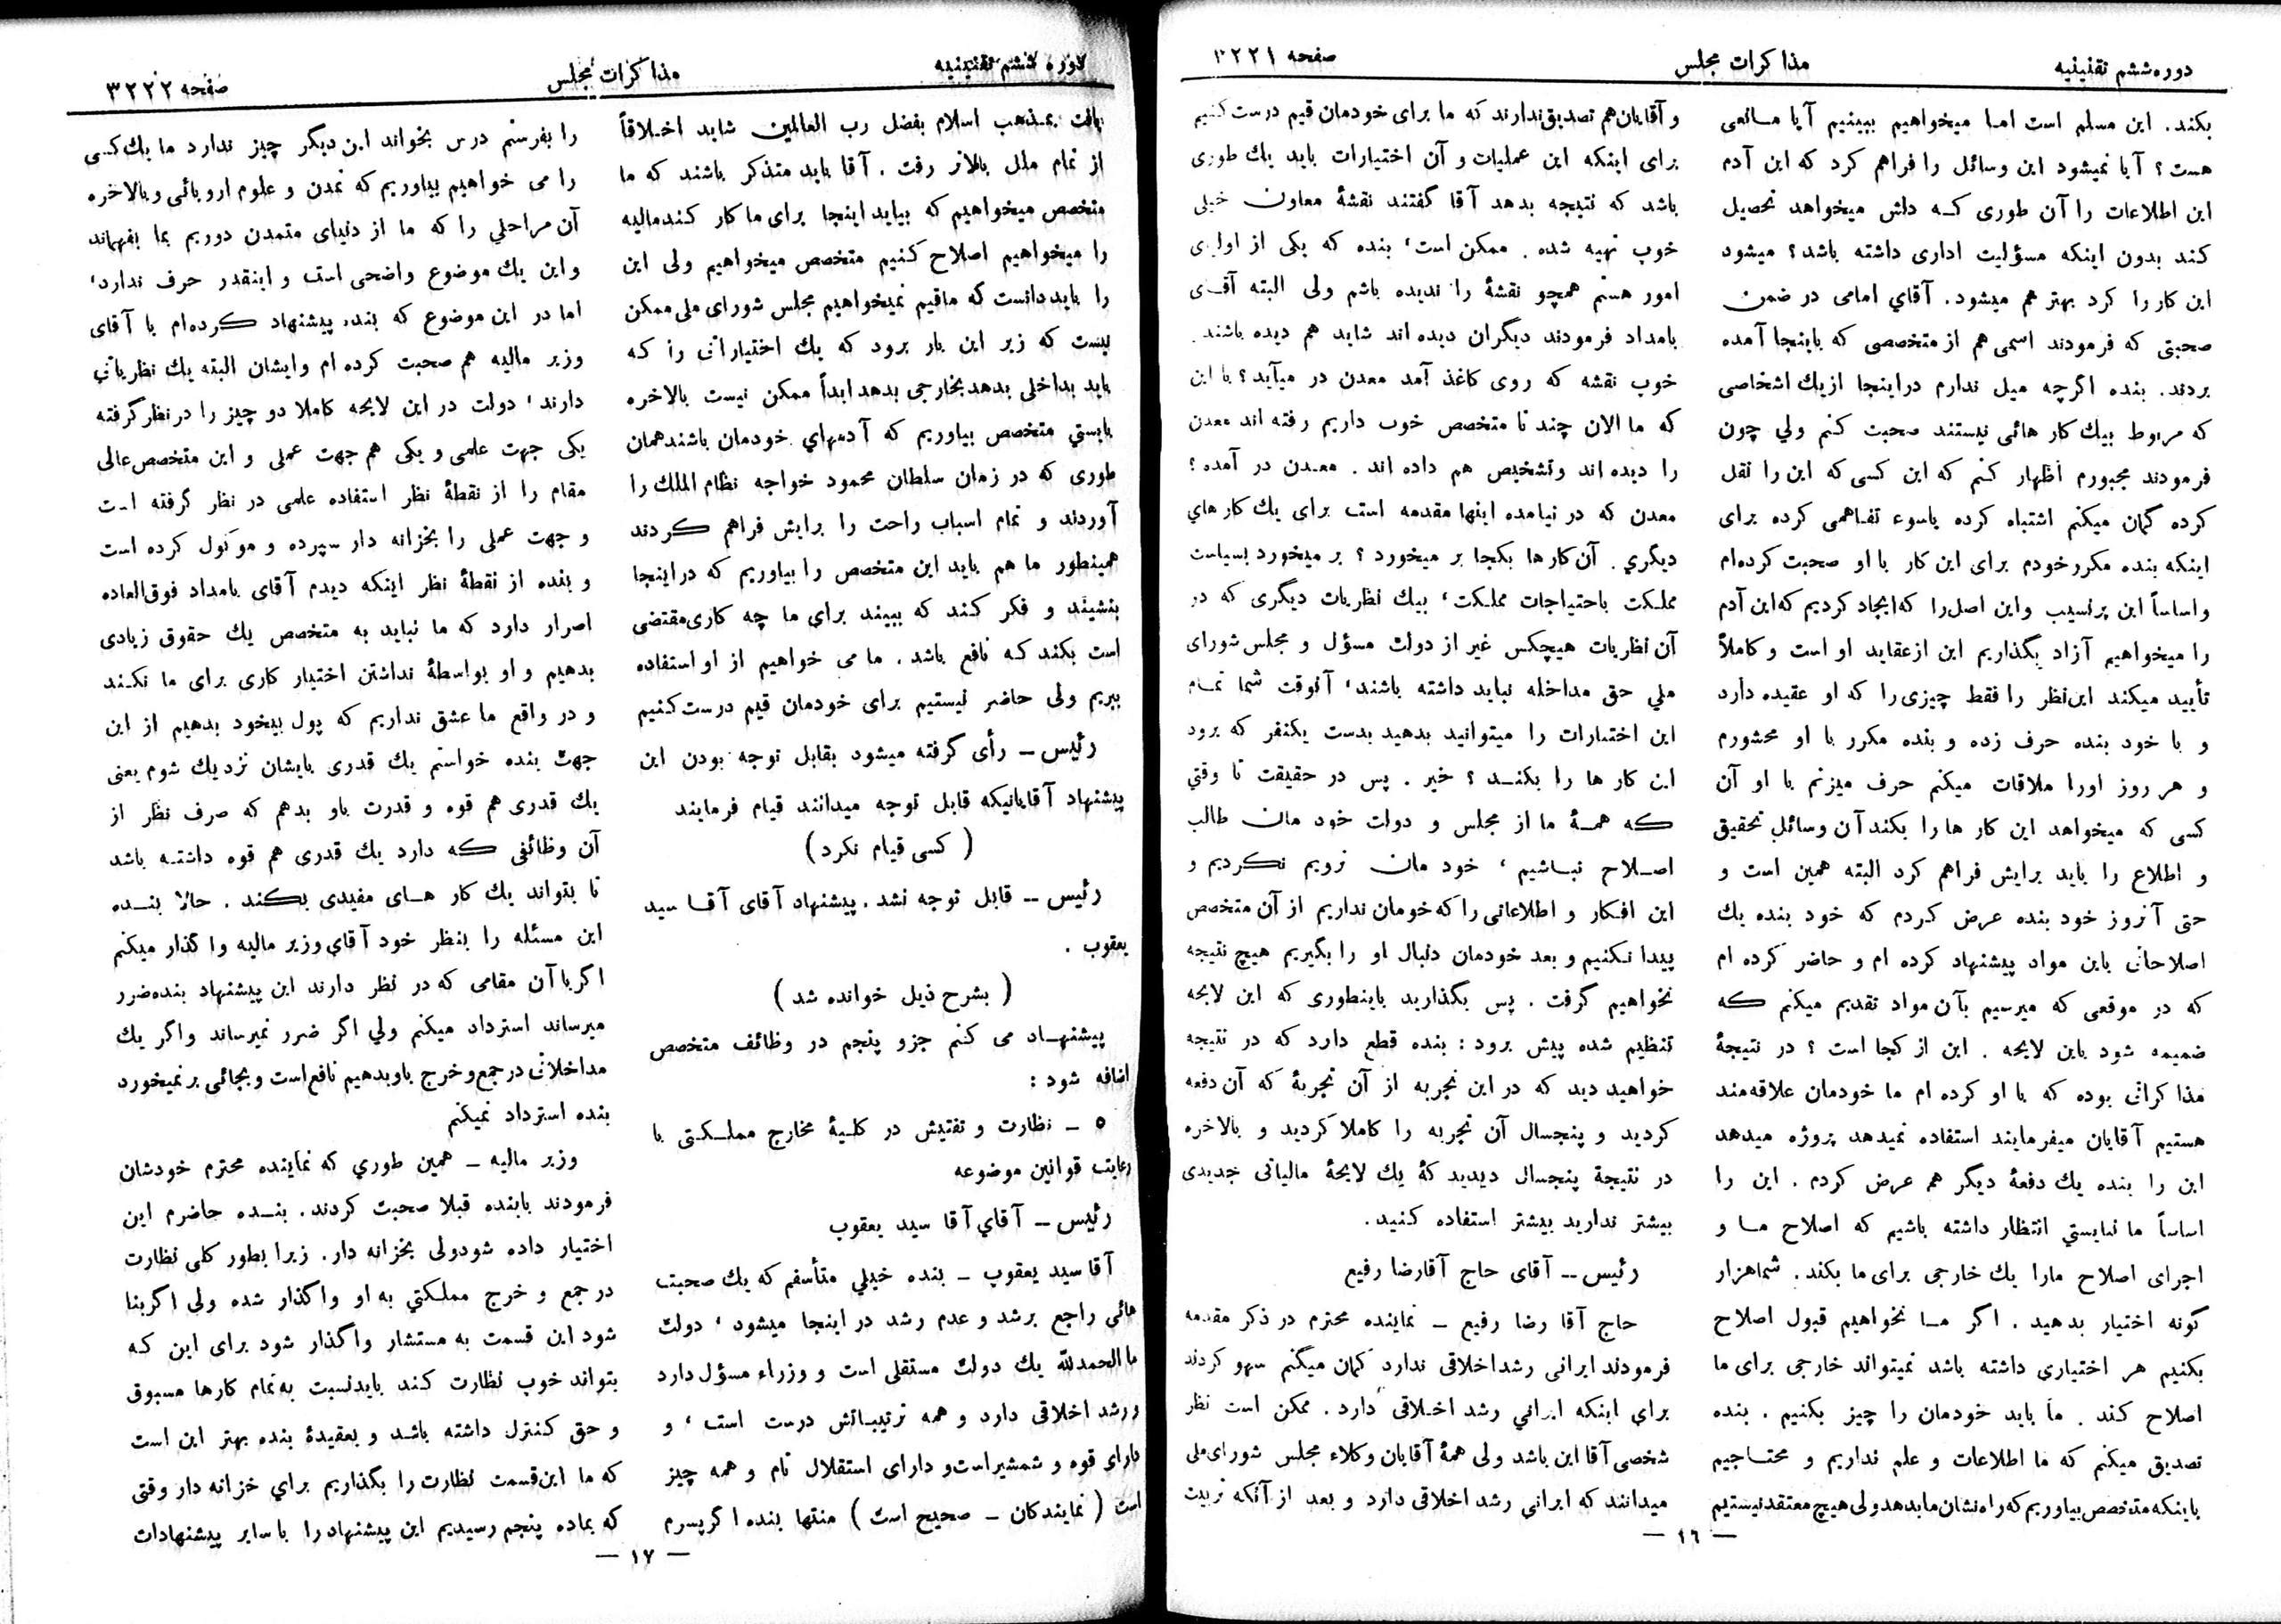 دوره ششم تقنینیه
مذاکرات مجلس
صفحه ۳۲۲۱
بکند. این مسلم است اما میخواهیم ببینیم آیا مانعی
هست؟ آیا نمیشود این وسائل را فراهم کرد که این آدم
این اطلاعات را آن طوری که دلش میخواهد تحصیل
کند بدون اینکه مسؤلیت اداری داشته باشد؟ میشود
این کار را کرد بهتر هم میشود. آقاي امامی در ضمن
صحبتی که فرمودند اسمی هم از متخصصی که باینجا آمده
بردند. بنده اگرچه میل ندارم در اینجا از یك اشخاصی
که مربوط بیك کار هائی نیستند صحبت کنم ولي چون
فرمودند مجبورم اظهار کنم که این کسی که این را نقل
کرده گمان میکنم اشتباه کرده یاسوء تفاهمی کرده برای
اینکه بنده مکرر خودم برای این کار با او صحبت کرده‌ام
و اساساً این پرنسیب و این اصل را که ایجاد کردیم که این آدم
را میخواهیم آزاد بگذاریم این از عقاید او است و کاملاً
تأیید میکند این نظر را فقط چیزی را که او عقیده دارد
و با خود بنده حرف زده و بنده مکرر با او محشورم
و هر روز اورا ملاقات میکنم حرف میزنم با او آن
کسی که میخواهد این کار ها را بکند آن وسائل تحقیق
و اطلاع را باید برایش فراهم کرد البته همین است و
حتی آنروز خود بنده عرض کردم که خود بنده یك
اصلاحاتی باین مواد پیشنهاد کرده ام و حاضر کرده ام
که در موقعی که میرسیم بآن مواد تقدیم میکنم که
ضمیمه شود باین لایحه. این از کجا است؟ در نتیجهٔ
مذاکراتی بوده که با او کرده ام ما خودمان علاقه‌مند
هستیم آقایان میفرمایند استفاده نمیدهد پروژه میدهد
این را بنده یك دفعهٔ دیگر هم عرض کردم. این را
اساساً ما نبایستي انتظار داشته باشیم که اصلاح ما و
اجرای اصلاح مارا یك خارجی برای ما بکند. شما هزار
گونه اختیار بدهید. اگر ما نخواهیم قبول اصلاح
بکنیم هر اختیاري داشته باشد نمیتواند خارجی برای ما
اصلاح کند. ما باید خودمان را چیز بکنیم. بنده
تصدیق میکنم که ما اطلاعات و علم نداریم و محتاجیم
باینکه متخصص بیاوریم که راه نشان ما بدهد ولی هیچ معتقد نیستیم
و آقایان هم تصدیق ندارند که ما برای خودمان قیم درست کنیم
برای اینکه این عملیات و آن اختیارات باید یك طوری
باشد که نتیجه بدهد آقا گفتند نقشهٔ معاون خیلی
خوب تهیه شده. ممکن است، بنده که یکی از اولیای
امور هستم همچو نقشهٔ را ندیده باشم ولی البته آقای
بامداد فرمودند دیگران دیده اند شاید هم دیده باشند.
خوب نقشه که روی کاغذ آمد معدن در میآید؟ با این
که ما الان چند تا متخصص خوب داریم رفته اند معدن
را دیده اند وتشخیص هم داده اند. معدن در آمده؟
معدن که در نیامده اینها مقدمه است برای یك کار هاي
دیگري. آن کار ها بکجا بر میخورد؟ بر میخورد بسیاست
مملکت باحتیاجات مملکت، بیك نظریات دیگری که در
آن نظریات هیچکس غیر از دولت مسؤل و مجلس شورای
ملي حق مداخله نباید داشته باشند، آنوقت شما تمام
این اختیارات را میتوانید بدهید بدست یکنفر که برود
این کار ها را بکند؟ خیر. پس در حقیقت تا وقتي
که همهٔ ما از مجلس و دولت خود مان طالب
اصلاح نباشیم، خود مان نرویم نکردیم و
این افکار و اطلاعاتی را که خومان نداریم از آن متخصص
پیدا نکنیم و بعد خودمان دنبال او را بگیریم هیچ نتیجه
نخواهیم گرفت. پس بگذارید باینطوری که این لایحه
تنظیم شده پیش برود: بنده قطع دارد که در نتیجه
خواهید دید که در این تجربه از آن تجربهٔ که آن دفعه
کردید و پنجسال آن تجربه را کاملا کردید و بالاخره
در نتیجهٔ پنجسال دیدید کهٔ یك لایحهٔ مالیاتی جدیدی
بیشتر ندارید بیشتر استفاده کنید.
رئیس -- آقای حاج آقارضا رفیع
حاج آقا رضا رفیع – نماینده محترم در ذکر مقدمه
فرمودند ایرانی رشد اخلاقی ندارد گمان میگنم سهو کردند
براي اینکه ایراني رشد اخلاقی دارد. ممکن است نظر
شخصی آقا این باشد ولی همهٔ آقایان وکلاء مجلس شورای ملی
میدانند که ایراني رشد اخلاقی دارد و بعد از آنکه تربیت
— ۱۶ —
دوره ششم تقنینیه
مذاکرات مجلس
صفحه ۳۲۲۲
یافت بمذهب اسلام بفضل رب العالمین شاید اخلاقاً
از تمام ملل بالاتر رفت. آقا باید متذکر باشند که ما
متخصص میخواهیم که بیاید اینجا برای ما کار کند مالیه
را میخواهیم اصلاح کنیم متخصص میخواهیم ولی این
را باید دانست که ماقیم نمیخواهیم مجلس شورای ملی ممکن
نیست که زیر این بار برود که یك اختیاراتی را که
باید بداخلی بدهد بخارجی بدهد ابداً ممکن نیست بالاخره
بایستي متخصص بیاوریم که آدمهاي خودمان باشند همان
طوری که در زمان سلطان محمود خواجه نظام الملك را
آوردند و تمام اسباب راحت را برایش فراهم کردند
همینطور ما هم باید این متخصص را بیاوریم که در اینجا
بنشیند و فکر کند که ببیند براي ما چه کاری مقتضی
است بکند که نافع باشد. ما می خواهیم از او استفاده
ببریم ولی حاضر نیستیم برای خودمان قیم درست کنیم
رئیس – رأی گرفته میشود بقابل توجه بودن این
پیشنهاد آقایانیکه قابل توجه میدانند قیام فرمایند
( کسی قیام نکرد )
رئیس -- قابل توجه نشد. پیشنهاد آقای آقا سید
یعقوب.
( بشرح ذیل خوانده شد )
پیشنهاد می کنم جزو پنجم در وظائف متخصص
اضافه شود:
۵ – نظارت و تفتیش در کلیهٔ مخارج مملکتی با
رعایت قوانین موضوعه
رئیس – آقاي آقا سید یعقوب
آقا سید یعقوب – بنده خیلي متأسفم که یك صحبت
هائي راجع برشد و عدم رشد در اینجا میشود، دولت
ما الحمدلله یك دولت مستقلی است و وزراء مسؤل دارد
و رشد اخلاقی دارد و همه ترتیباتش درست است، و
داراي قوه و شمشیر است و دارای استقلال تام و همه چیز
است ( نمایندکان – صحیح است ) منتها بنده اگر پسرم
را بفرستم درس بخواند این دیگر چیز ندارد ما یك کسی
را می خواهیم بیاوریم که تمدن و علوم اروپائی و بالاخره
آن مراحلي را که ما از دنیای متمدن دوریم بما بفهماند
و این یك موضوع واضحی است و اینقدر حرف ندارد،
اما در این موضوع که بنده پیشنهاد کرده‌ام با آقای
وزیر مالیه هم صحبت کرده ام وایشان البته یك نظریاتی
دارند، دولت در این لایحه کاملا دو چیز را در نظر گرفته
یکی جهت علمی و یکی هم جهت عملی و این متخصص عالی
مقام را از نقطهٔ نظر استفاده علمی در نظر گرفته است
و جهت عملی را بخزانه دار سپرده و موکول کرده است
و بنده از نقطهٔ نظر اینکه دیدم آقای بامداد فوق‌العاده
اصرار دارد که ما نباید به متخصص یك حقوق زیادی
بدهیم و او بواسطهٔ نداشتن اختیار کاری برای ما نکند
و در واقع ما عشق نداریم که پول بیخود بدهیم از این
جهت بنده خواستم یك قدری بایشان نزدیك شوم یعنی
یك قدری هم قوه و قدرت باو بدهم که صرف نظر از
آن وظائفی که دارد یك قدری هم قوه داشته باشد
تا بتواند یك کار های مفیدی بکند. حالا بنده
این مسئله را بنظر خود آقاي وزیر مالیه واگذار میکنم
اگر با آن مقامی که در نظر دارند این پیشنهاد بنده ضرر
میرساند استرداد میکنم ولي اگر ضرر نمیرساند واگر یك
مداخلاتی در جمع و خرج باو بدهیم نافع است و بجائی بر نمیخورد
بنده استرداد نمیکنم
وزیر مالیه – همین طوري که نماینده محترم خودشان
فرمودند بابنده قبلا صحبت کردند. بنده حاضرم این
اختیار داده شودولی بخزانه دار. زیرا بطور کلی نظارت
در جمع و خرج مملکتي به او واگذار شده ولی اگر بنا
شود این قسمت به مستشار واگذار شود برای این که
بتواند خوب نظارت کند باید نسبت به تمام کارها مسبوق
و حق کنترل داشته باشد و بعقیدهٔ بنده بهتر این است
که ما این قسمت نظارت را بگذاریم براي خزانه دار وقتی
که بماده پنجم رسیدیم این پیشنهاد را با سایر پیشنهادات
— ۱۷ —